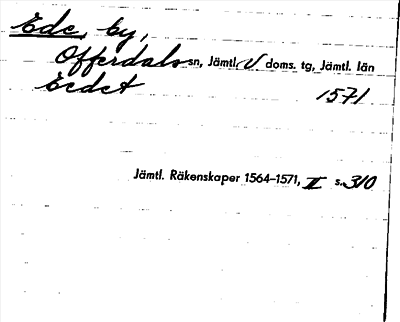 Ede, by,
Offerdals sn, Jämtl. V doms. tg, Jämtl. län
Eedet 1571
Jämtl. Räkenskaper 1564–1571, II s. 310